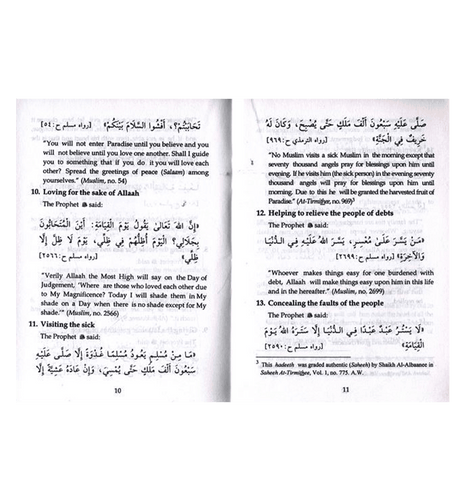 تَحَابَبْتُمْ؟، أَفْشُوا السَّلَامَ بَيْنَكُمْ» [رواه مسلم ح: ٥٤]
"You will not enter Paradise until you believe and you
will not believe until you love one another. Shall I guide
you to something that if you do it you will love each
other? Spread the greetings of peace (Salaam) among
yourselves." (Muslim, no. 54)
10. Loving for the sake of Allaah
The Prophet ﷺ said:
«إِنَّ اللهَ تَعَالَىٰ يَقُولُ يَوْمَ الْقِيَامَةِ: أَيْنَ الْمُتَحَابُّونَ
بِجَلَالِي؟ الْيَوْمَ أُظِلُّهُمْ فِي ظِلِّي، يَوْمَ لَا ظِلَّ إِلَّا
ظِلِّي» [رواه مسلم ح: ٢٥٦٦]
"Verily Allaah the Most High will say on the Day of
Judgement, 'Where are those who loved each other due
to My Magnificence? Today I will shade them in My
shade on a Day when there is no shade except for My
shade.'" (Muslim, no. 2566)
11. Visiting the sick
The Prophet ﷺ said:
«مَا مِنْ مُسْلِمٍ يَعُودُ مُسْلِمًا غُدْوَةً إِلَّا صَلَّى عَلَيْهِ
سَبْعُونَ أَلْفَ مَلَكٍ حَتَّى يُمْسِيَ، وَإِنْ عَادَهُ عَشِيَّةً إِلَّا
10
صَلَّى عَلَيْهِ سَبْعُونَ أَلْفَ مَلَكٍ حَتَّى يُصْبِحَ، وَكَانَ لَهُ
خَرِيفٌ فِي الْجَنَّةِ» [رواه الترمذي ح: ٩٦٩]
"No Muslim visits a sick Muslim in the morning except that
seventy thousand angels pray for blessings upon him until
evening. If he visits him (the sick person) in the evening seventy
thousand angels will pray for blessings upon him until
morning. Due to this he will be granted the harvested fruit of
Paradise." (At-Tirmithee, no. 969)³
12. Helping to relieve the people of debts
The Prophet ﷺ said:
«مَنْ يَسَّرَ عَلَىٰ مُعْسِرٍ، يَسَّرَ اللهُ عَلَيْهِ فِي الدُّنْيَا
وَالآخِرَةِ» [رواه مسلم ح: ٢٦٩٩]
"Whoever makes things easy for one burdened with
debt, Allaah will make things easy upon him in this life
and in the hereafter." (Muslim, no. 2699)
13. Concealing the faults of the people
The Prophet ﷺ said:
«لَا يَسْتُرُ عَبْدٌ عَبْدًا فِي الدُّنْيَا إِلَّا سَتَرَهُ اللهُ يَوْمَ
الْقِيَامَةِ» [رواه مسلم ح: ٢٥٩٠]
³ This hadeeth was graded authentic (Saheeh) by Shaikh Al-Albaanee in
Saheeh At-Tirmithee, Vol. 1, no. 775. A.W.
11